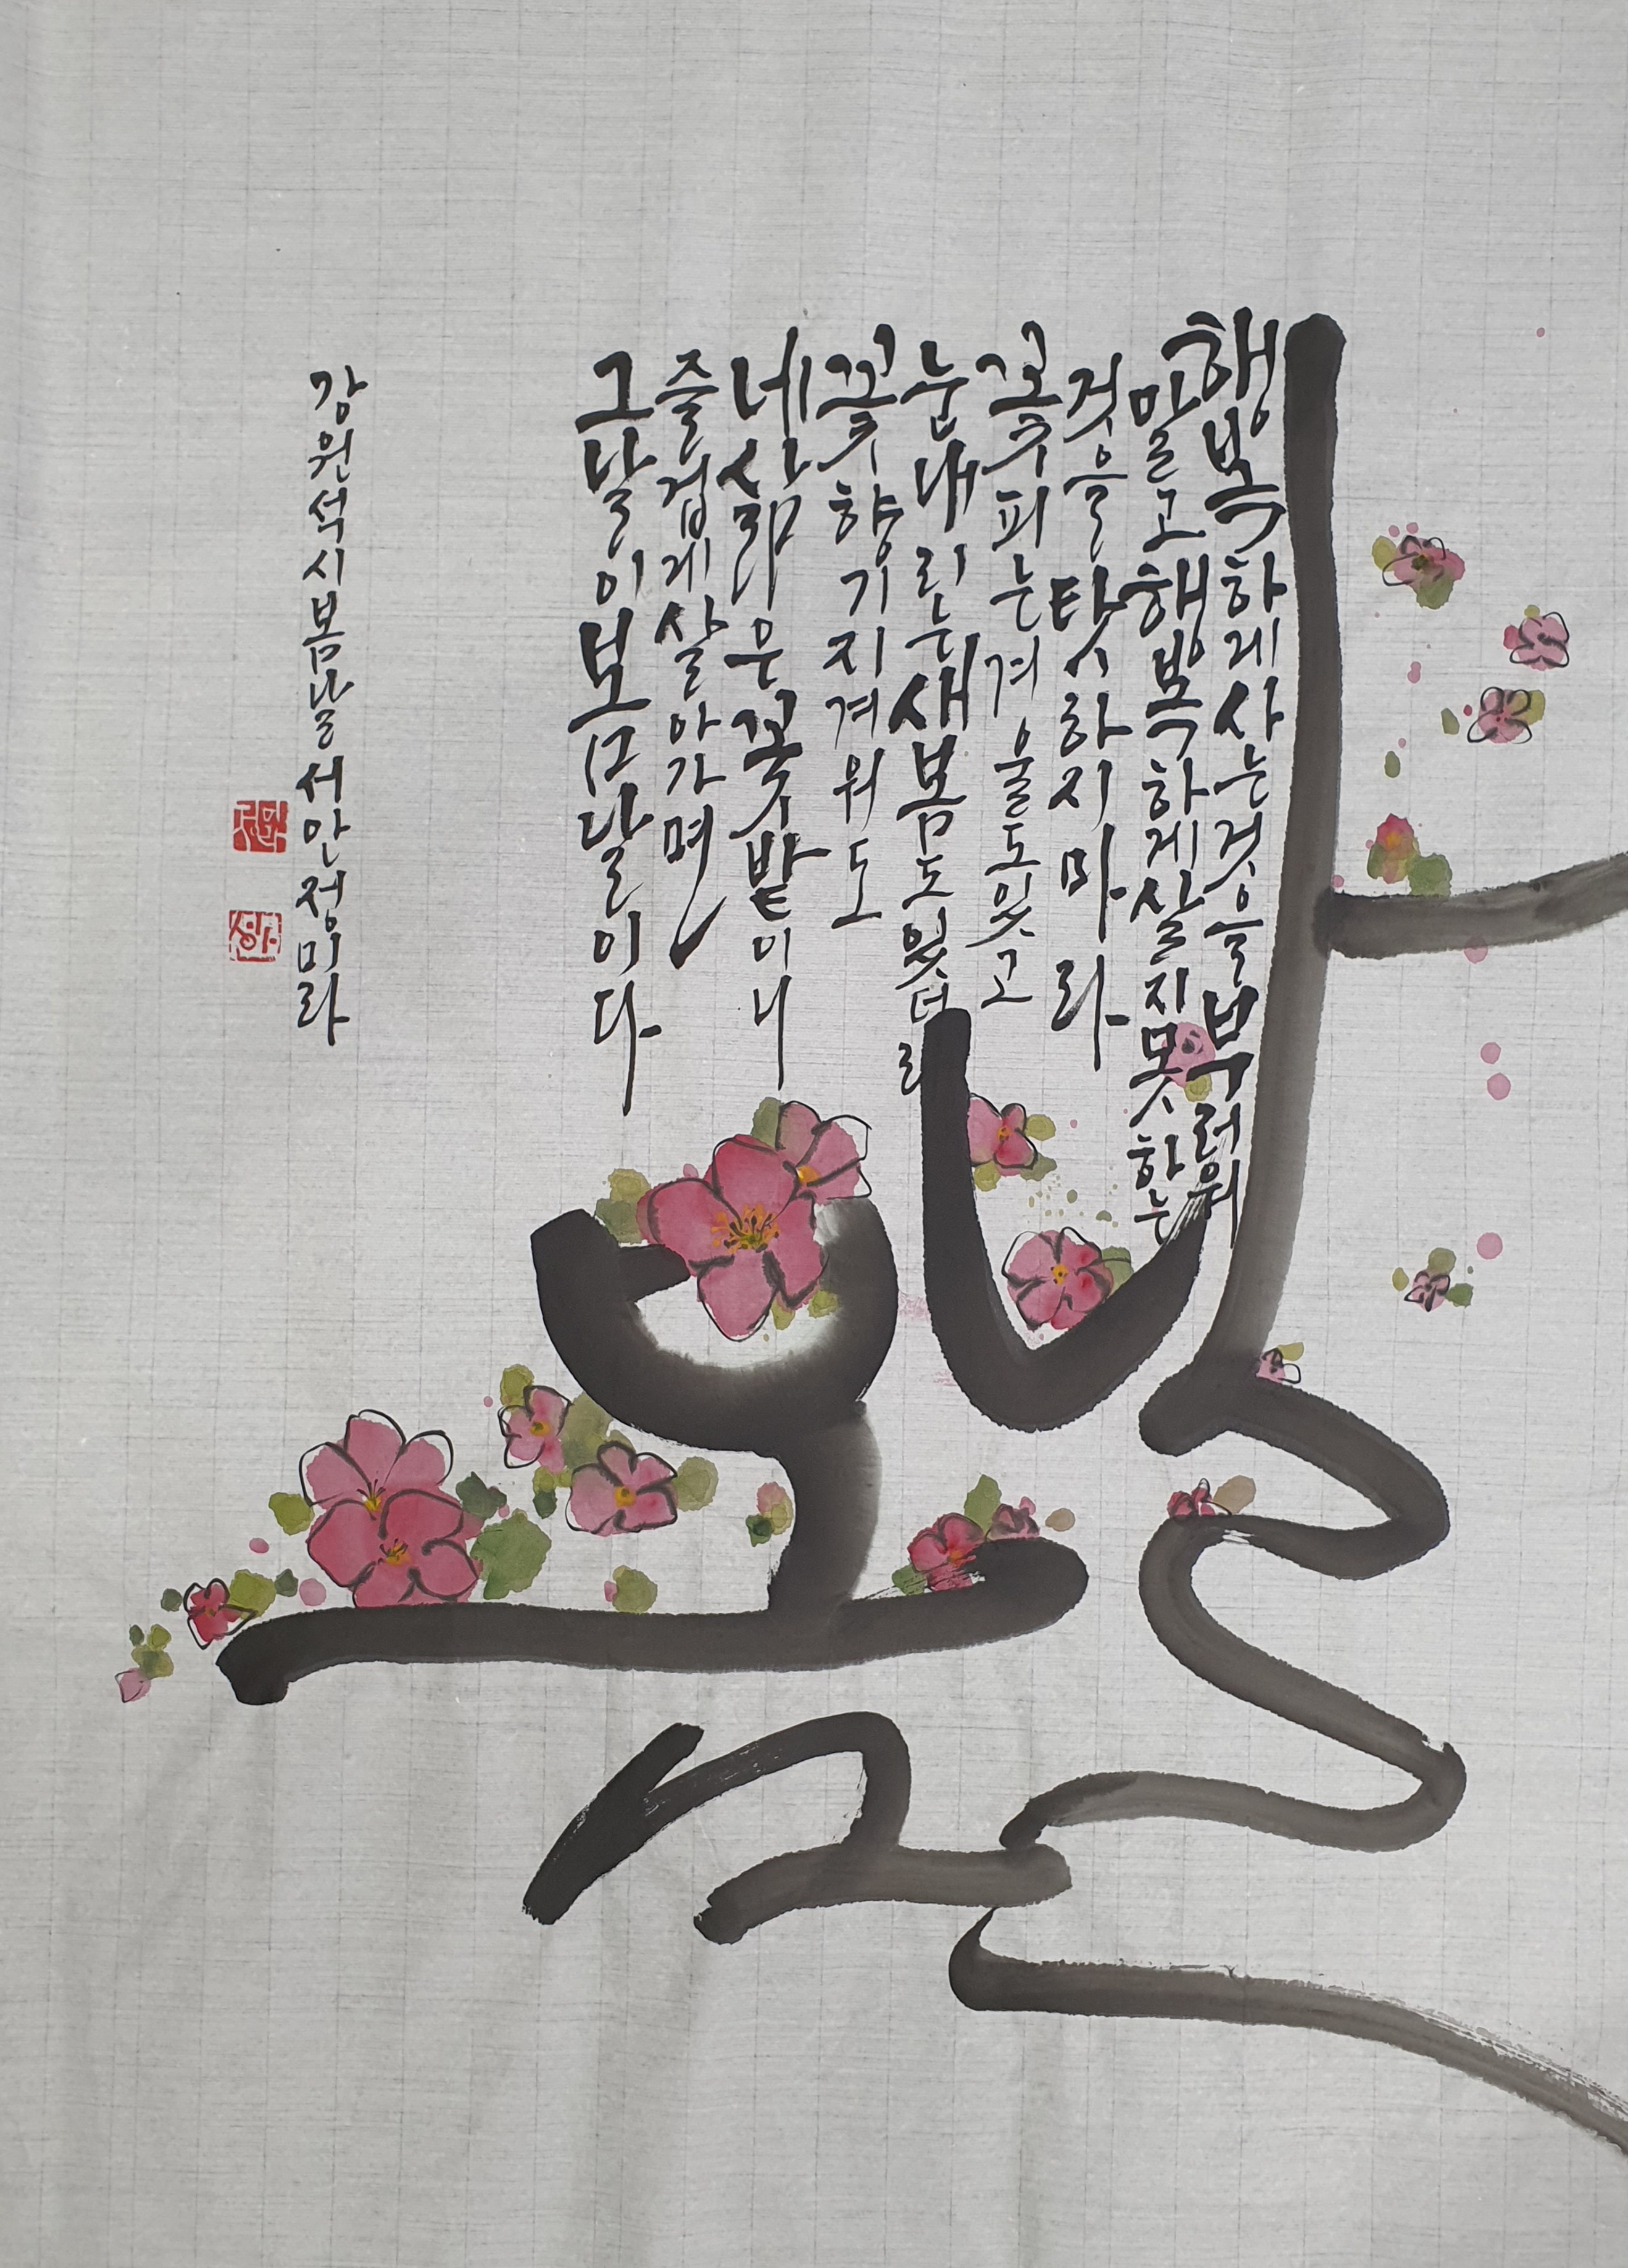 행복하게사는것을부러워
말고행복하게살지못하는
것을탓하지마라
꽃피는겨울도있고
눈내리는새봄도있더라
꽃향기지겨워도
네삶은꽃밭이니
즐겁게살아가면
그날이봄날이다
강원석시봄날서안정미라
봄날